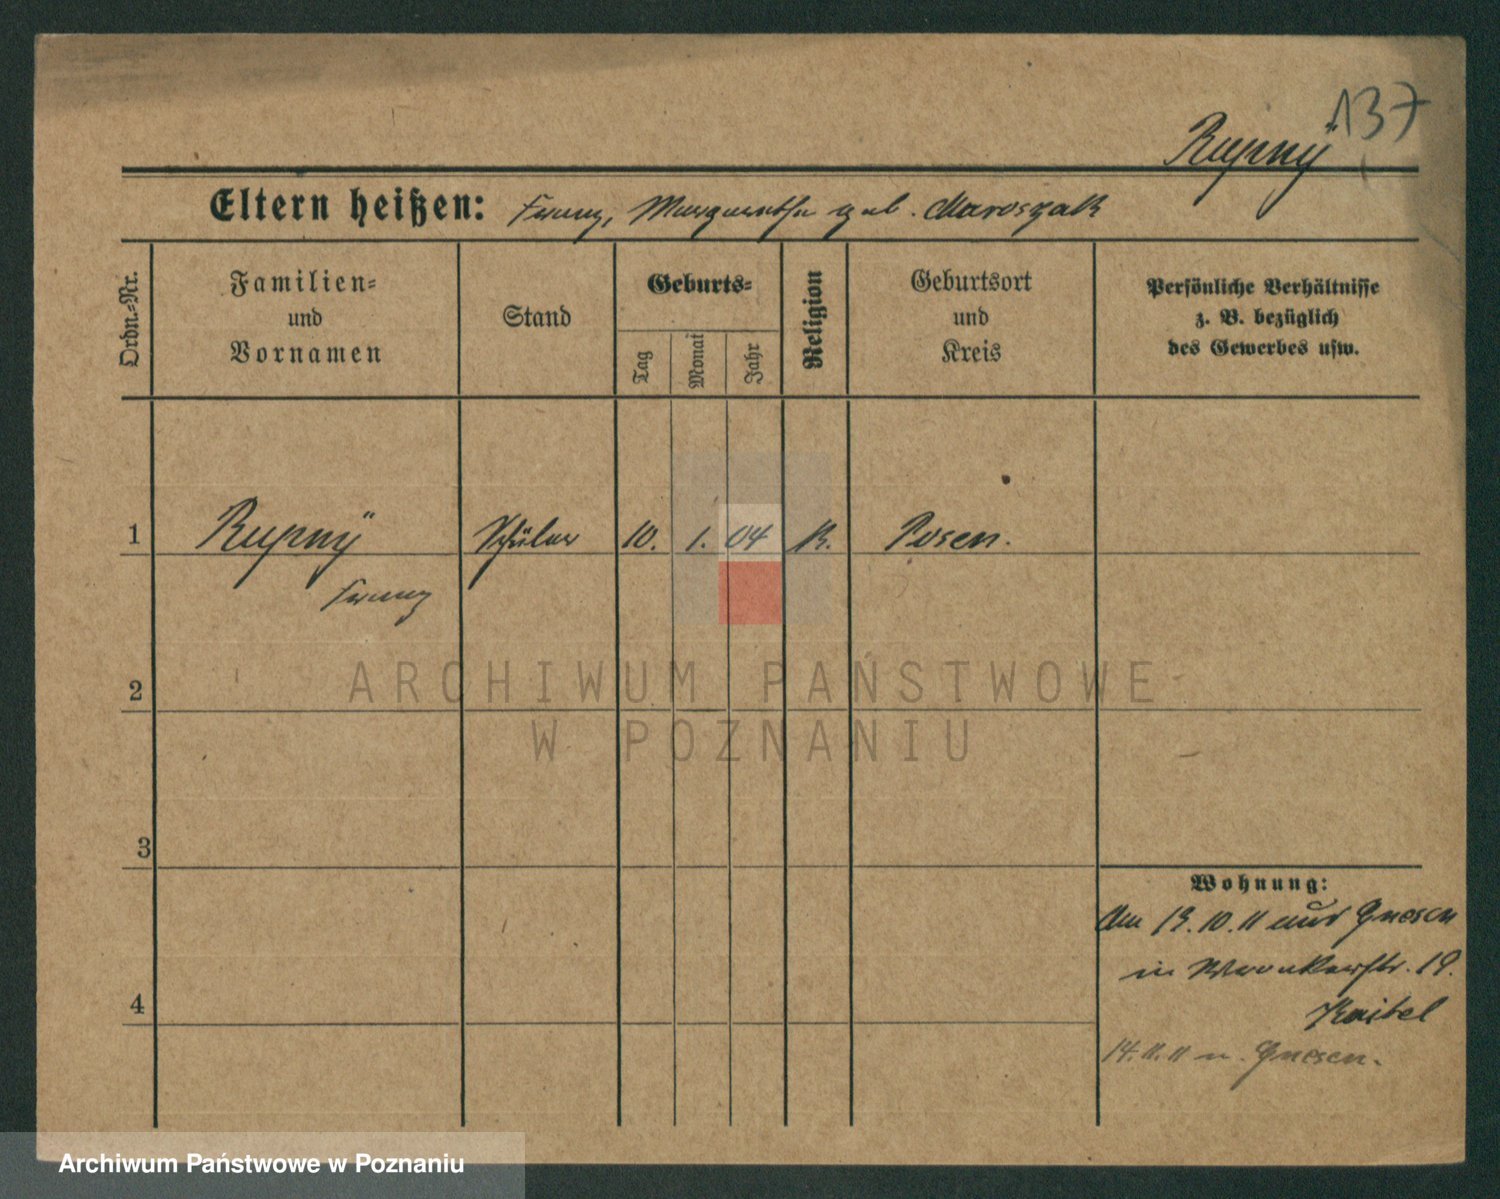 137
Rupnÿ
Eltern heißen: Franz, Margarethe geb. Maroszak
Ordn.-Nr.
Familien- und Vornamen
Stand
Geburts-
Tag
Monat
Jahr
Religion
Geburtsort und Kreis
Persönliche Verhältnisse
z. B. bezüglich
des Gewerbes usw.
1 Rupnÿ Schüler 10. 1. 04 K. Posen.
Franz
2
ARCHIWUM PAŃSTWOWE
W POZNANIU
3
Wohnung:
Am 19.10.11 aus Gnesen
in Wronkerstr. 19.
4
14.11.11 n. Gnesen.
Archiwum Państwowe w Poznaniu